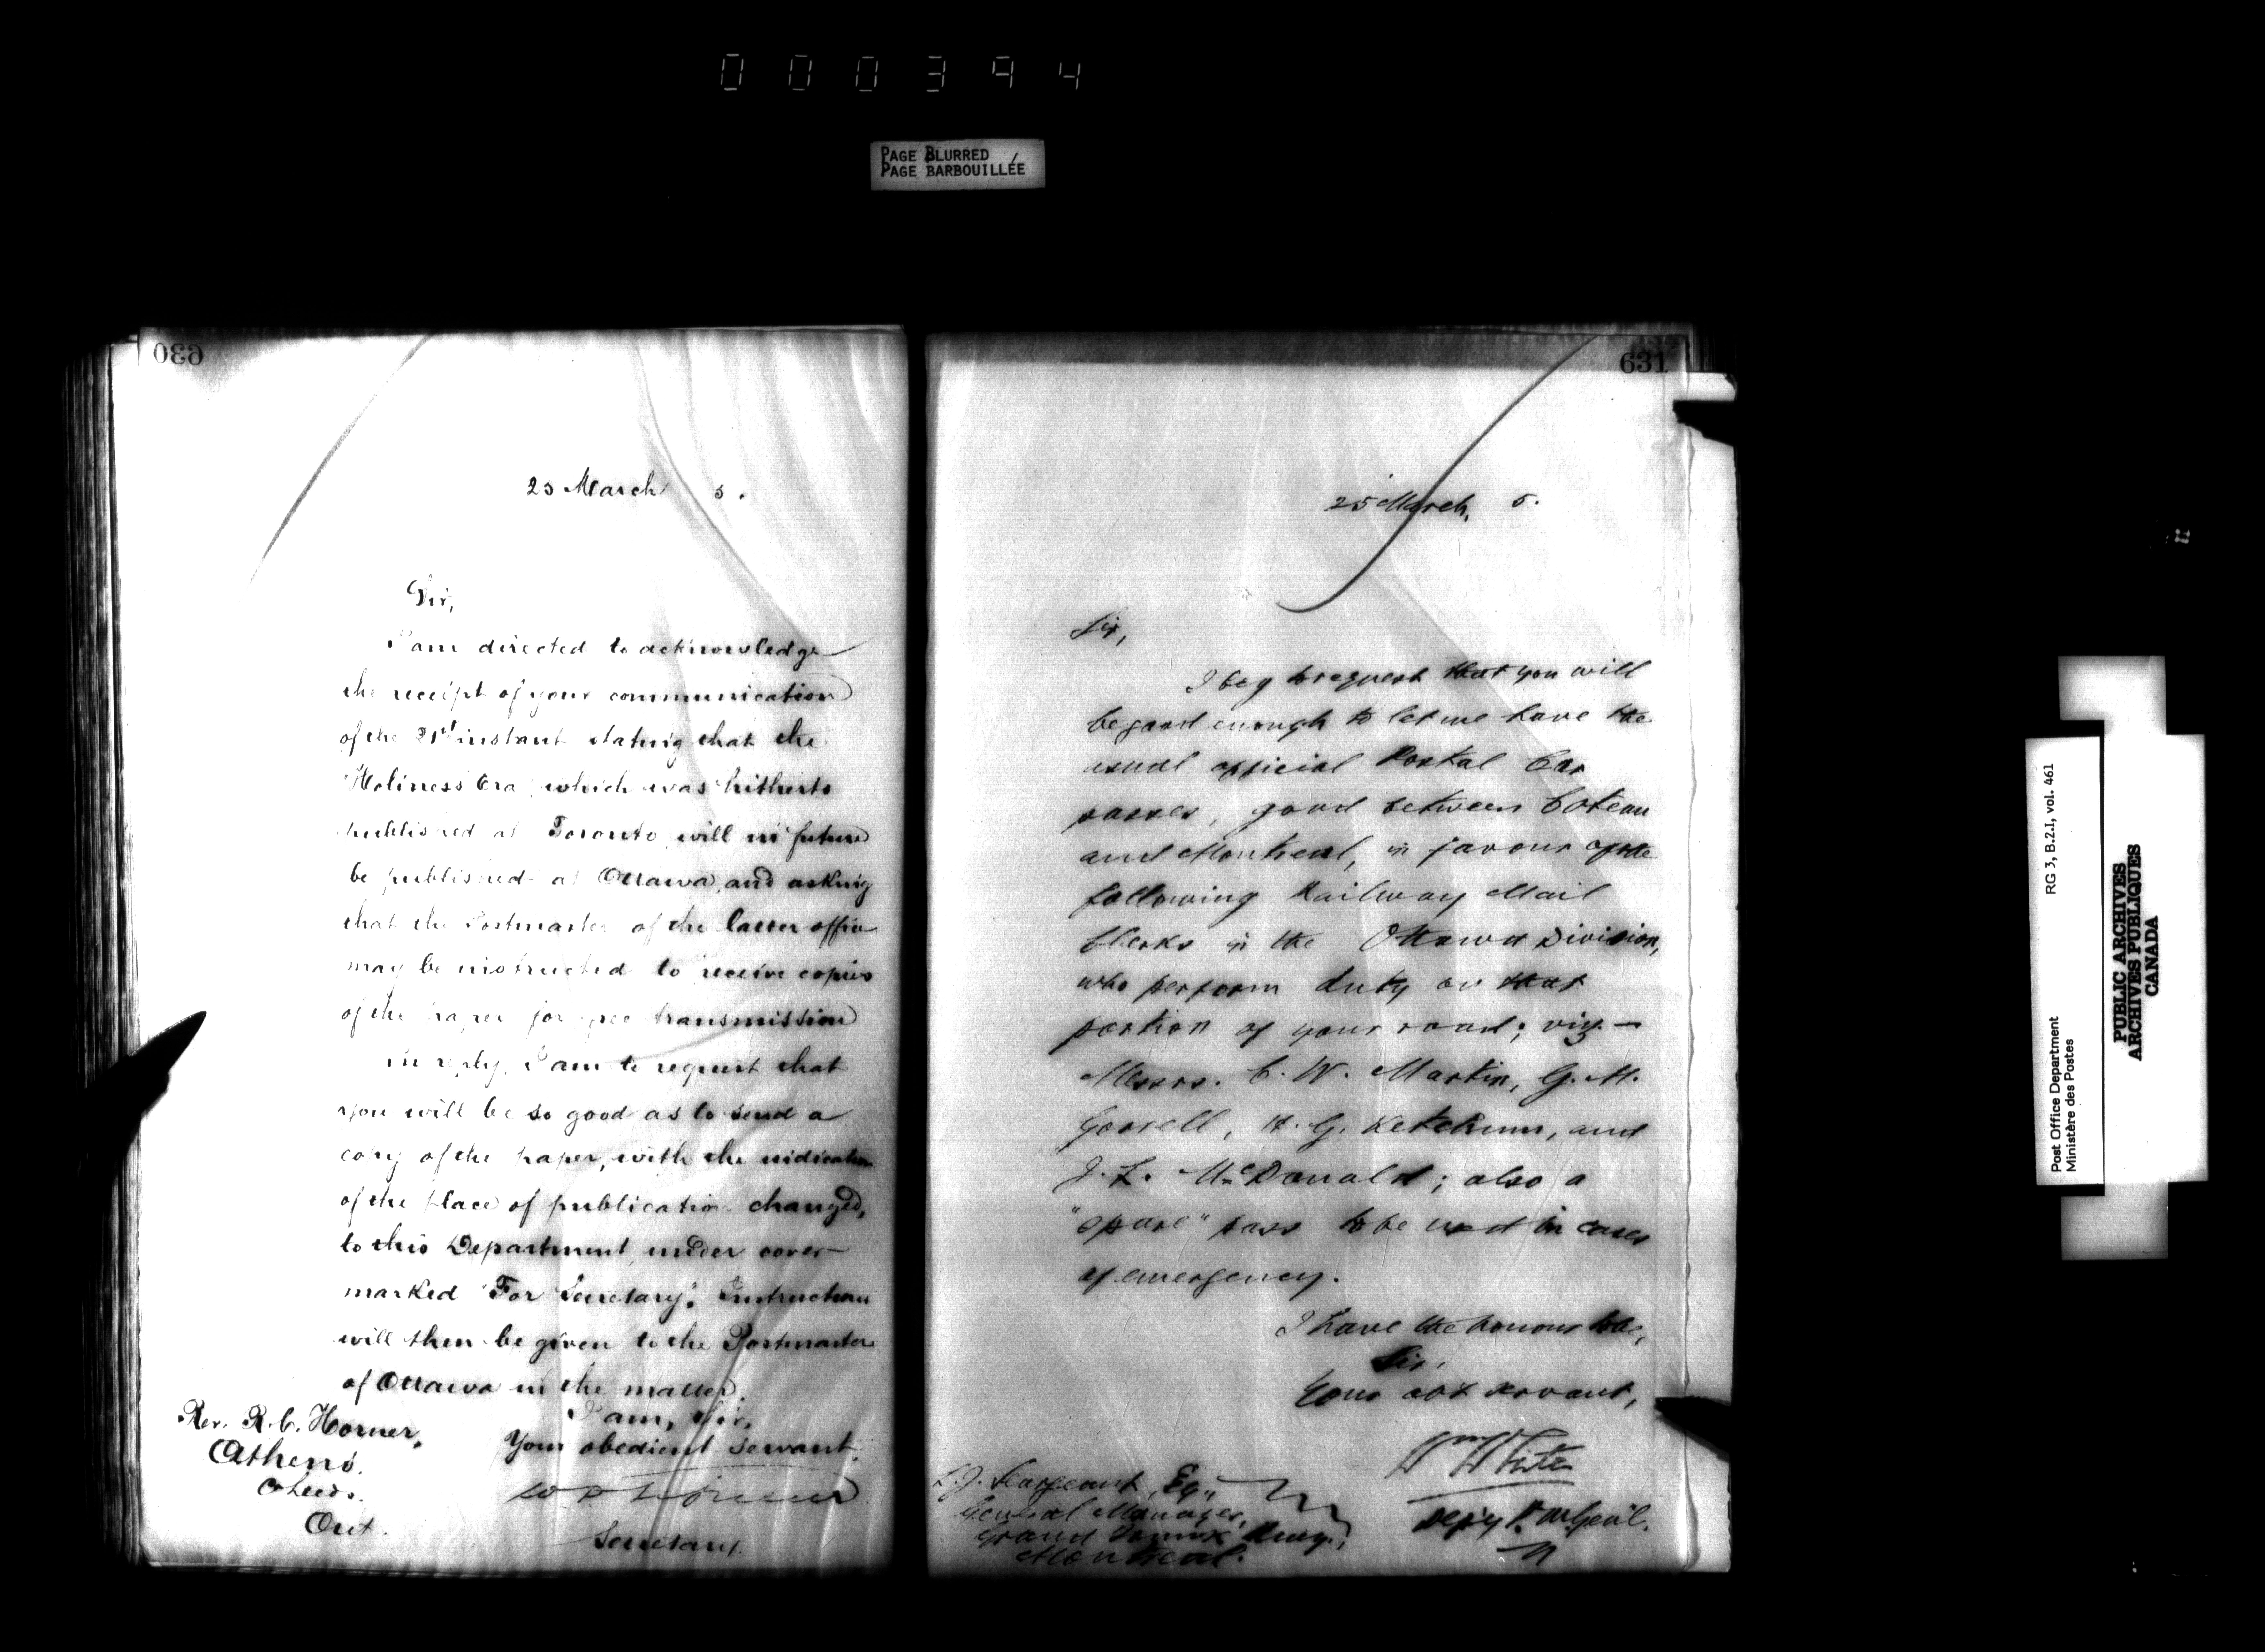 000394
PAGE BLURRED
PAGE BARBOUILLÉE
630
25 March 5.
Sir,
I am directed to acknowledge
the receipt of your communication
of the instant stating that the
"Holiness Era", which was hitherto
published at Toronto, will in future
be published at Ottawa, and asking
that the Postmaster of the latter office
may be instructed to receive copies
of the paper for free transmission
In reply, I am to request that
you will be so good as to send a
copy of the paper, with the indication
of the place of publication changed,
to this Department, under cover
marked "For Secretary". Instructions
will then be given to the Postmaster
of Ottawa in the matter.
I am, Sir,
Your obedient servant.
Secretary.
Rev. R. C. Horner,
Athens.
Leeds.
Ont.
631
25 March, 5.
Sir,
I beg to request that you will
be good enough to let me have the
usual official Postal Car
passes, good between Coteau
and Montreal, in favour of the
following Railway Mail
Clerks in the Ottawa Division,
who perform duty on that
portion of your road; viz. —
Messrs. C. W. Martin, G. M.
Gorrell, H. G. Ketchum, and
J. L. McDonald; also a
"spare" pass to be used in cases
of emergency.
I have the honour to be,
Sir,
Your obt servant,
Wm White
Dep'y P. M. Gen'l.
L. J. Seargeant, Esq.,
General Manager,
Grand Trunk Rway.,
Montreal.
Post Office Department
Ministère des Postes
RG 3, B.2.I, vol. 461
PUBLIC ARCHIVES
ARCHIVES PUBLIQUES
CANADA